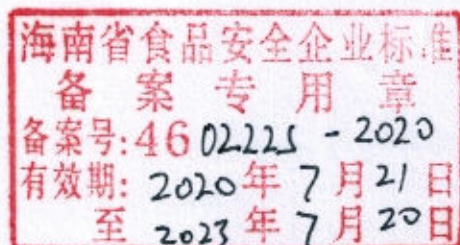 海南省食品安全企业标准
备案专用章
备案号:4602225-2020
有效期: 2020年7月21日
至 2023年7月20日